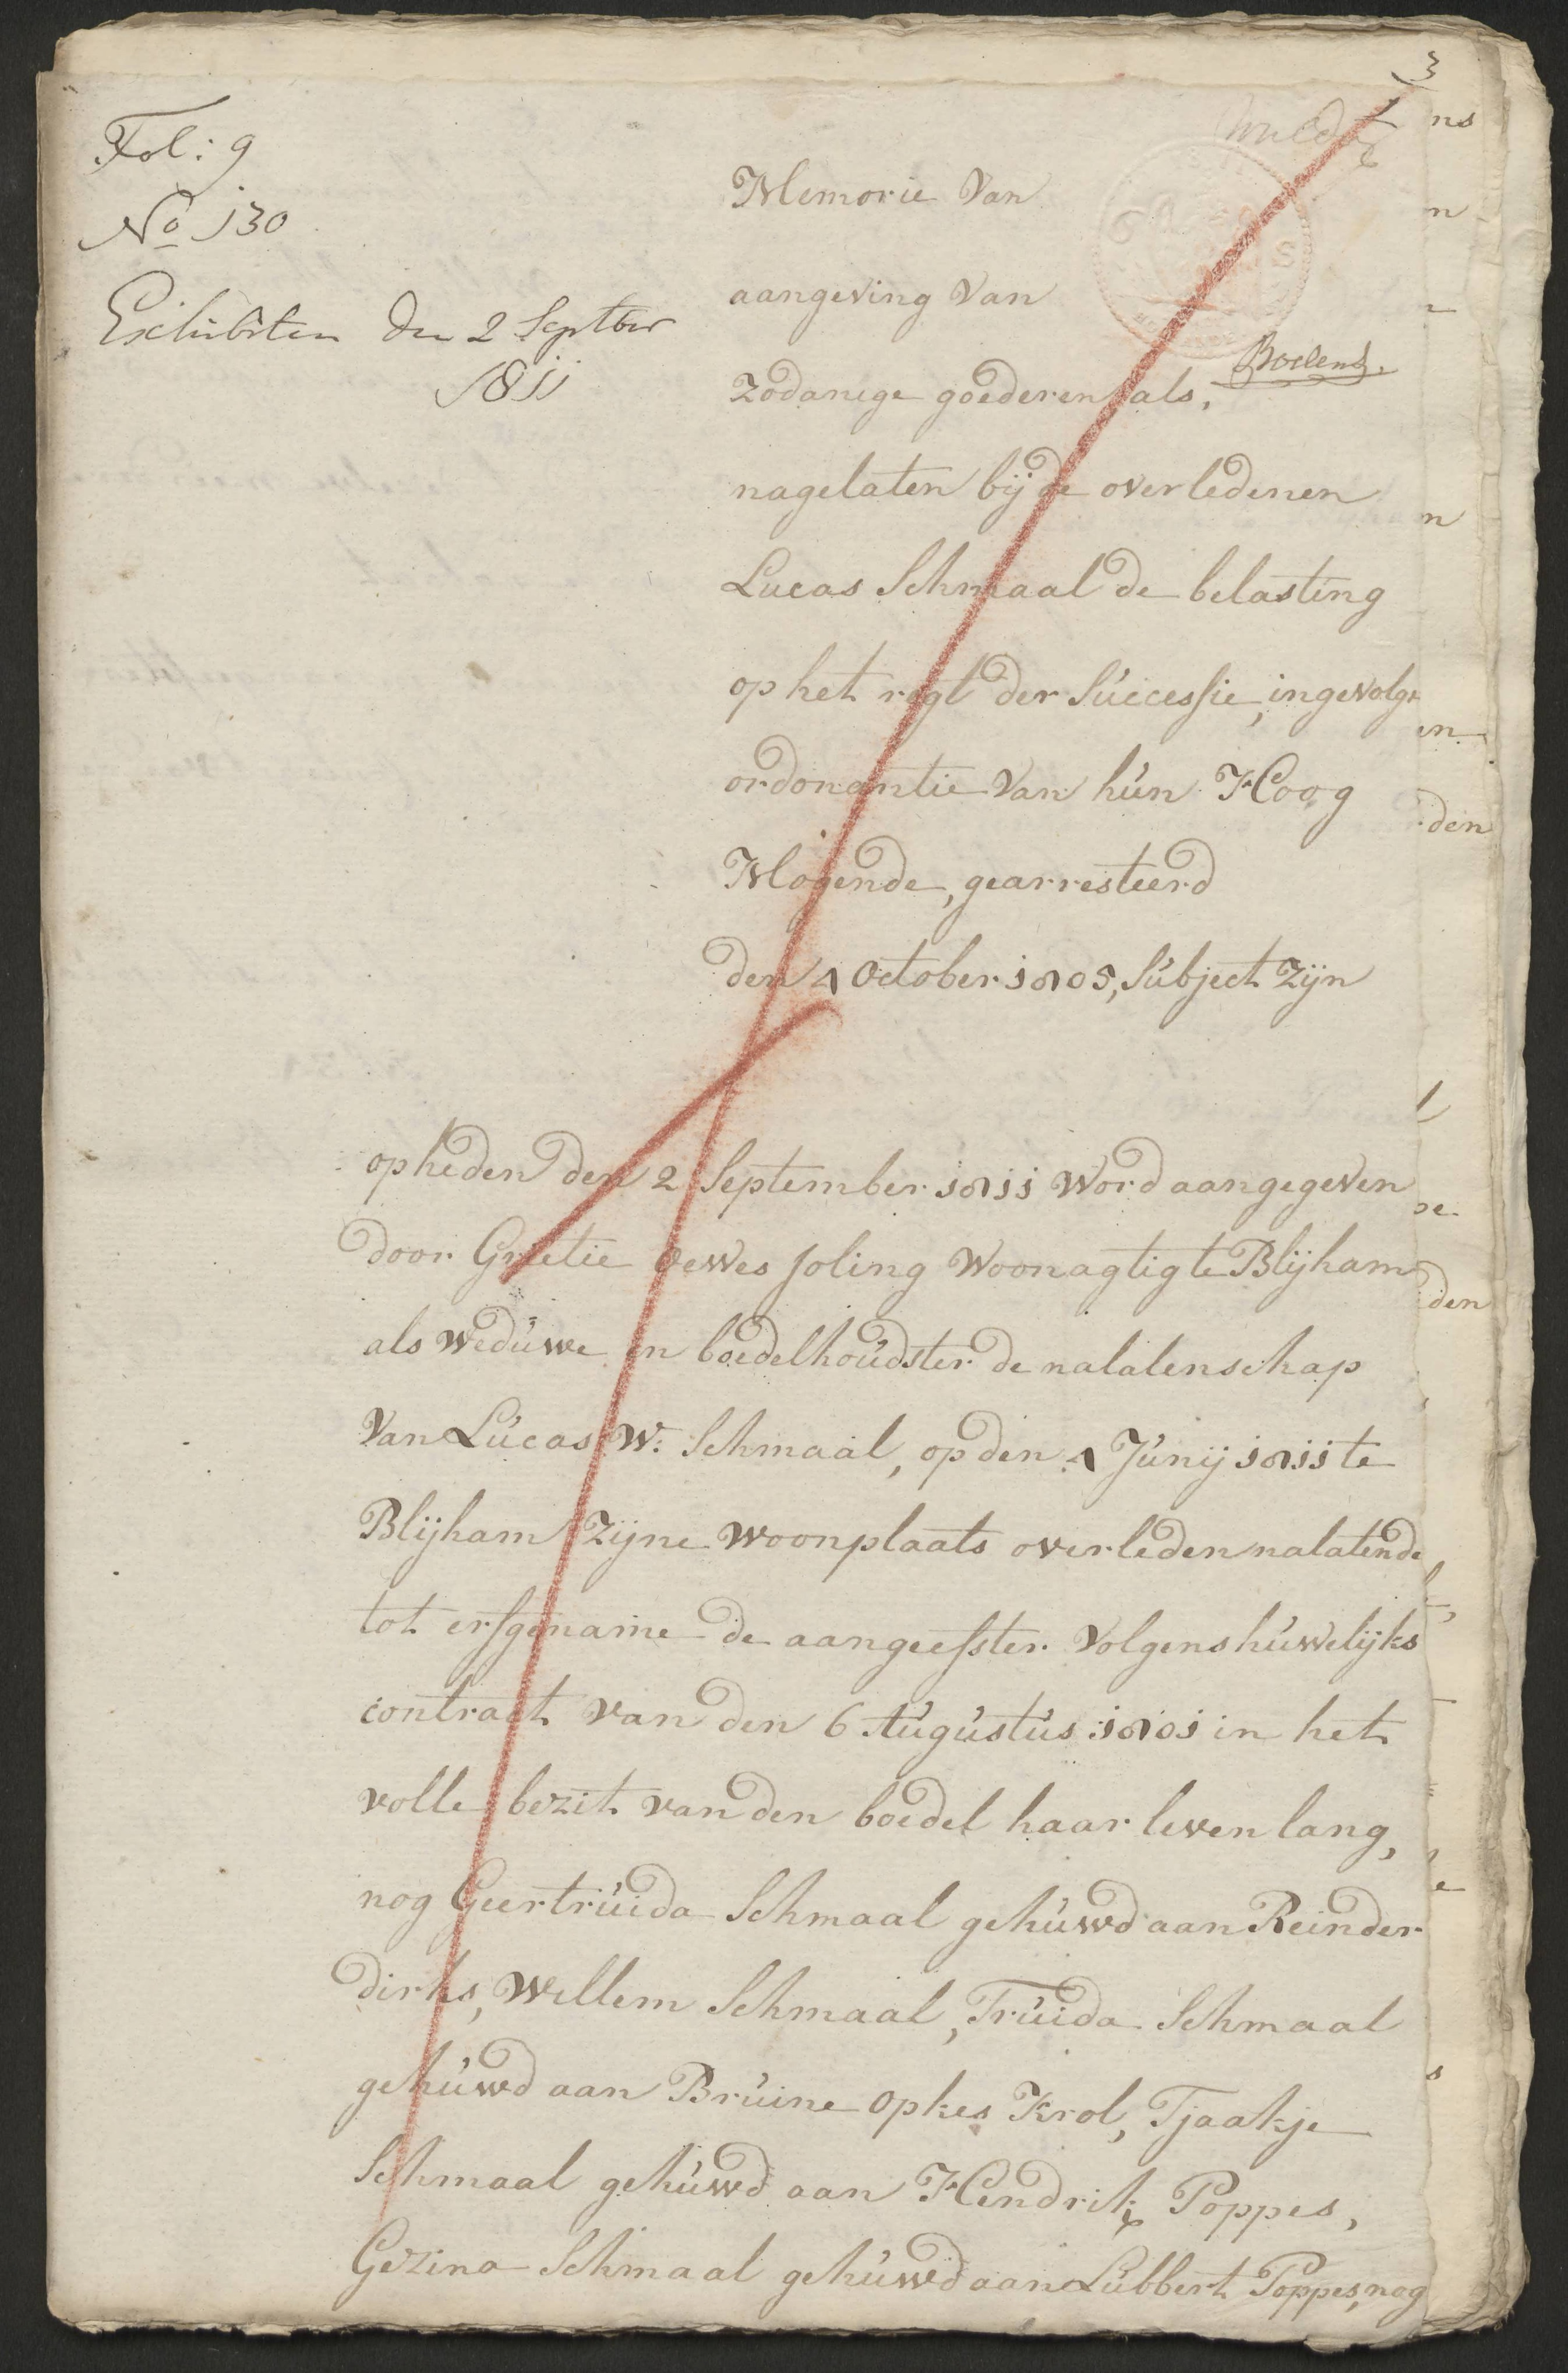 3
Fol: 9
No 130
Exhibitm den 2 Septber
1811
Memorie Van
aangeving Van
Boelens.
zodanige goederen als,
nagelaten bij de overledenen
Lucas Schmaal de belasting
op het regt der Successie, ingevolge
ordonantie Van hun Hoog
Mogende, gearresteerd
den 4 October 1805, Subject Zijn
op heden den 2 September 1811 Word aangegeven
door Grietie Oewes Joling Woonagtig te Blijham
als Weduwe en boedelhoudster de nalatenschap
Van Lucas W: Schmaal, op den 4 Junij 1811 te
Blijham Zijne Woonplaats overleden nalatende
tot erfgename de aangeefster Volgens huwelijks
contract van den 6 Augustus 1801 in het
volle bezit van den boedel haar leven lang,
nog Geertruida Schmaal gehuwd aan Reinder
dirks, Willem Schmaal, Truida Schmaal
gehuwd aan Bruine Opkes Krol, Tjaakje
Schmaal gehuwd aan Hendrik Poppes,
Gezina Schmaal gehuwd aan Lubbert Poppes, nog